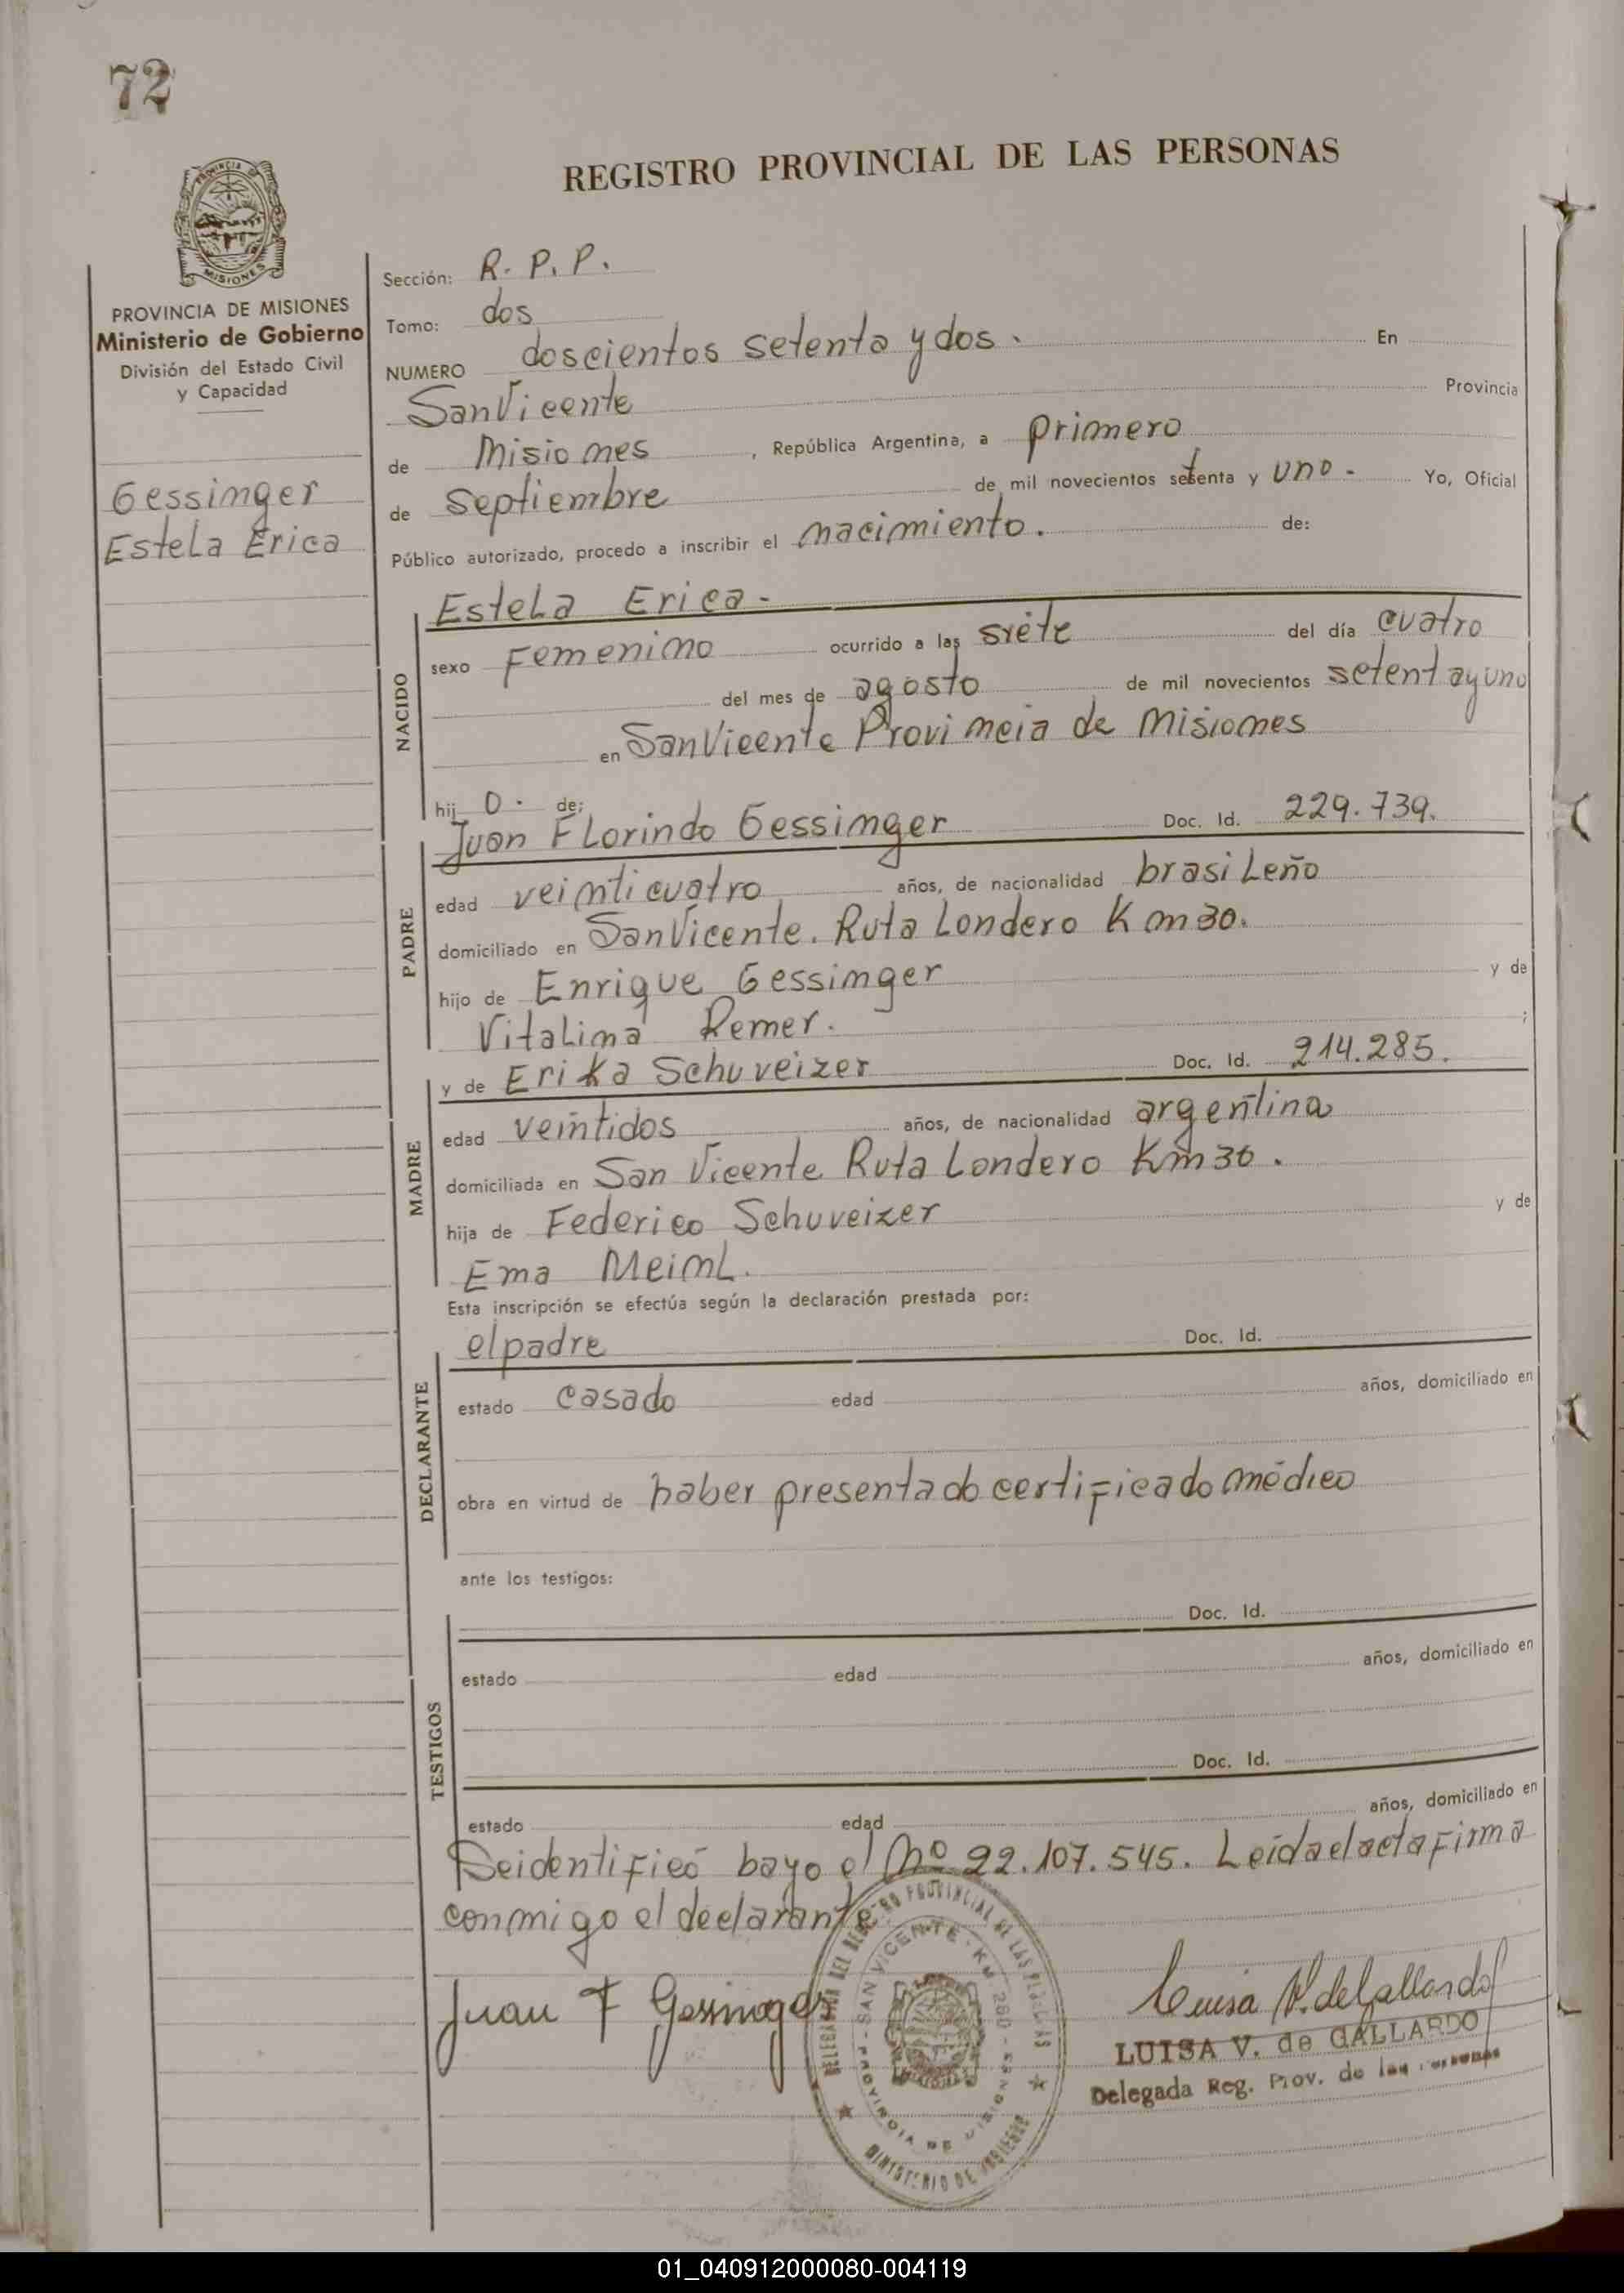 72
REGISTRO PROVINCIAL DE LAS PERSONAS
PROVINCIA
MISIONES
PROVINCIA DE MISIONES
Ministerio de Gobierno
División del Estado Civil
y Capacidad
Gessinger
Estela Erica
Sección: R. P. P.
Tomo: dos
NUMERO doscientos setenta y dos. En
San Vicente Provincia
de Misiones, República Argentina, a primero
de septiembre de mil novecientos setenta y uno. Yo, Oficial
Público autorizado, procedo a inscribir el nacimiento. de:
NACIDO
Estela Erica.
sexo Femenino ocurrido a las siete del día cuatro
del mes de agosto de mil novecientos setenta y uno
en San Vicente Provincia de Misiones
hij o. de:
PADRE
Juan Florindo Gessinger Doc. Id. 229.739.
edad veinticuatro años, de nacionalidad brasileño
domiciliado en San Vicente. Ruta Londero Km 30.
hijo de Enrique Gessinger y de
Vitalina Remer. ;
MADRE
y de Erika Schuveizer Doc. Id. 214.285.
edad veintidos años, de nacionalidad argentina
domiciliada en San Vicente Ruta Londero Km 30.
hija de Federico Schuveizer y de
Ema Meinl.
Esta inscripción se efectúa según la declaración prestada por:
DECLARANTE
el padre Doc. Id.
estado casado edad años, domiciliado en
obra en virtud de haber presentado certificado médico
ante los testigos:
TESTIGOS
Doc. Id.
estado edad años, domiciliado en
Doc. Id.
estado edad años, domiciliado en
Se identificó bayo el Nº 22.107.545. Leída el acta firma
conmigo el declarante
Juan F Gessinger
DELEGACION DEL REGISTRO PROVINCIAL DE LAS PERSONAS
SAN VICENTE - KM 280 - MISIONES
PROVINCIA DE
MINISTERIO DE GOBIERNO
Luisa V. de Gallardo
LUISA V. de GALLARDO
Delegada Reg. Prov. de las Personas
01_040912000080-004119